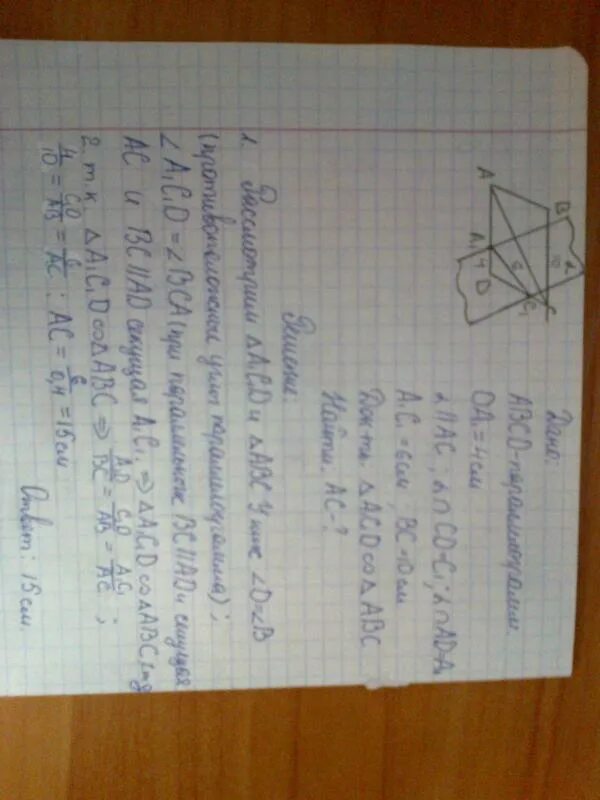 Дано:
ABCD-параллелограмм.
DA₁=4см
α∥AC; α∩CD=C₁; α∩AD=A₁
A₁C₁=6см; BC=10см
Док-ть: △A₁C₁D∽△ABC
Найти: AC-?
B
α
10
C
A
A₁
4
6
C₁
D
Решение:
1. Рассмотрим △A₁C₁D и △ABC У них ∠D=∠B
(противоположные углы параллелограмма);
∠A₁C₁D=∠BCA (при параллельных BC∥AD и секущая
AC и BC∥AD секущая A₁C₁ ⇒ △A₁C₁D∽△ABC
2. т.к. △A₁C₁D∽△ABC ⇒ A₁D/BC = C₁D/AB = A₁C₁/AC ;
4/10 = C₁D/AB = 6/AC ; AC = 6/0,4 = 15см
Ответ: 15см.